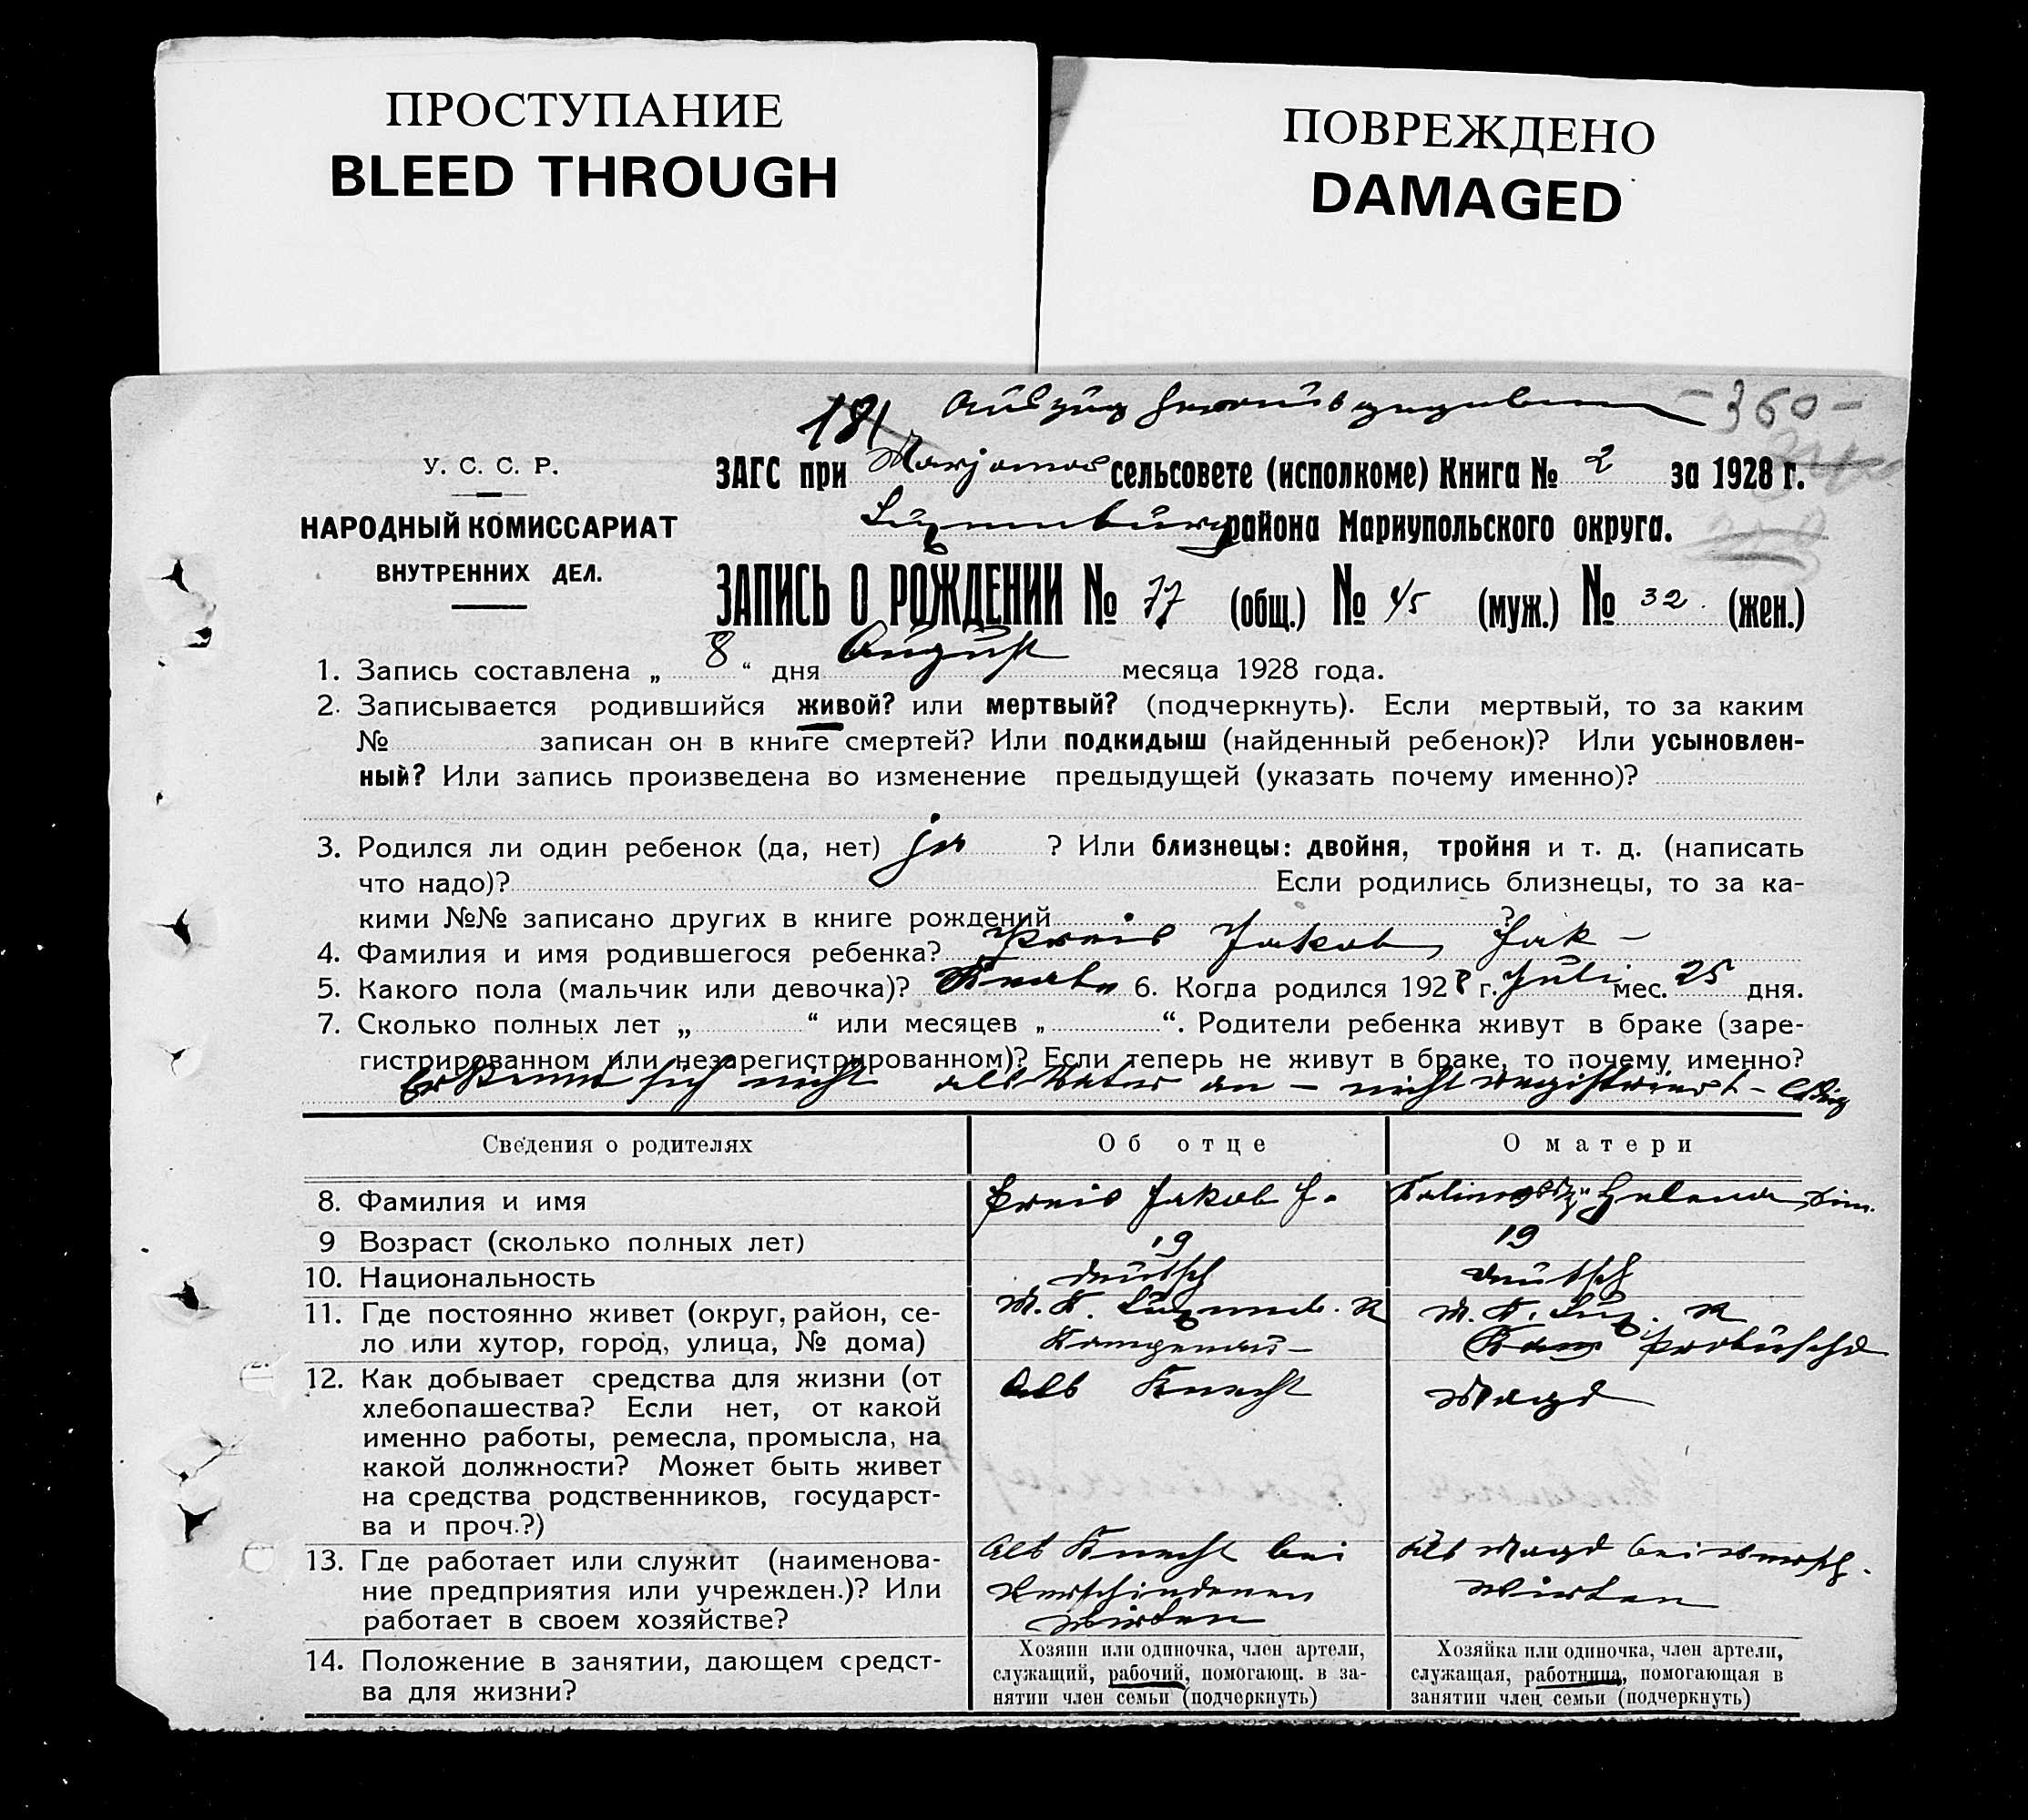 ПРОСТУПАНИЕ
BLEED THROUGH
ПОВРЕЖДЕНО
DAMAGED
181 Auszug herausgegeben -360-
У. С. С. Р.
НАРОДНЫЙ КОМИССАРИАТ
ВНУТРЕННИХ ДЕЛ.
ЗАГС при сельсовете (исполкоме) Книга № 2 за 1928 г.
района Мариупольского округа.
ЗАПИСЬ О РОЖДЕНИИ № 77 (общ.) № 45 (муж.) № 32. (жен.)
1. Запись составлена „ 8 “ дня August месяца 1928 года.
2. Записывается родившийся живой? или мертвый? (подчеркнуть). Если мертвый, то за каким
№ записан он в книге смертей? Или подкидыш (найденный ребенок)? Или усыновлен-
ный? Или запись произведена во изменение предыдущей (указать почему именно)?
3. Родился ли один ребенок (да, нет) ja ? Или близнецы: двойня, тройня и т. д. (написать
что надо)? Если родились близнецы, то за ка-
кими №№ записано других в книге рождений ?
4. Фамилия и имя родившегося ребенка? Preis Jakob Jak -
5. Какого пола (мальчик или девочка)? Knabe 6. Когда родился 1928 г. Juli мес. 25 дня.
7. Сколько полных лет „ “ или месяцев „ “. Родители ребенка живут в браке (заре-
гистрированном или незарегистрированном)? Если теперь не живут в браке, то почему именно?
Erkennt sich nicht als Vater an - nicht registriert - ledig
Сведения о родителях Об отце О матери
8. Фамилия и имя Preis Jakob J. Helena
9 Возраст (сколько полных лет) 19 19
10. Национальность deutsch deutsch
11. Где постоянно живет (округ, район, се-
ло или хутор, город, улица, № дома)
M. K. Luxemb. R
Kamgenau-
M. K. Lux. R
12. Как добывает средства для жизни (от
хлебопашества? Если нет, от какой
именно работы, ремесла, промысла, на
какой должности? Может быть живет
на средства родственников, государст-
ва и проч.?)
Als Knecht
Magd
13. Где работает или служит (наименова-
ние предприятия или учрежден.)? Или
работает в своем хозяйстве?
Als Knecht bei
verschiedenen
Wirten
Als Magd bei versch.
Wirten
14. Положение в занятии, дающем средст-
ва для жизни?
Хозяин или одиночка, член артели,
служащий, рабочий, помогающ. в за-
нятии член семьи (подчеркнуть)
Хозяйка или одиночка, член артели,
служащая, работница, помогающая в
занятии член семьи (подчеркнуть)